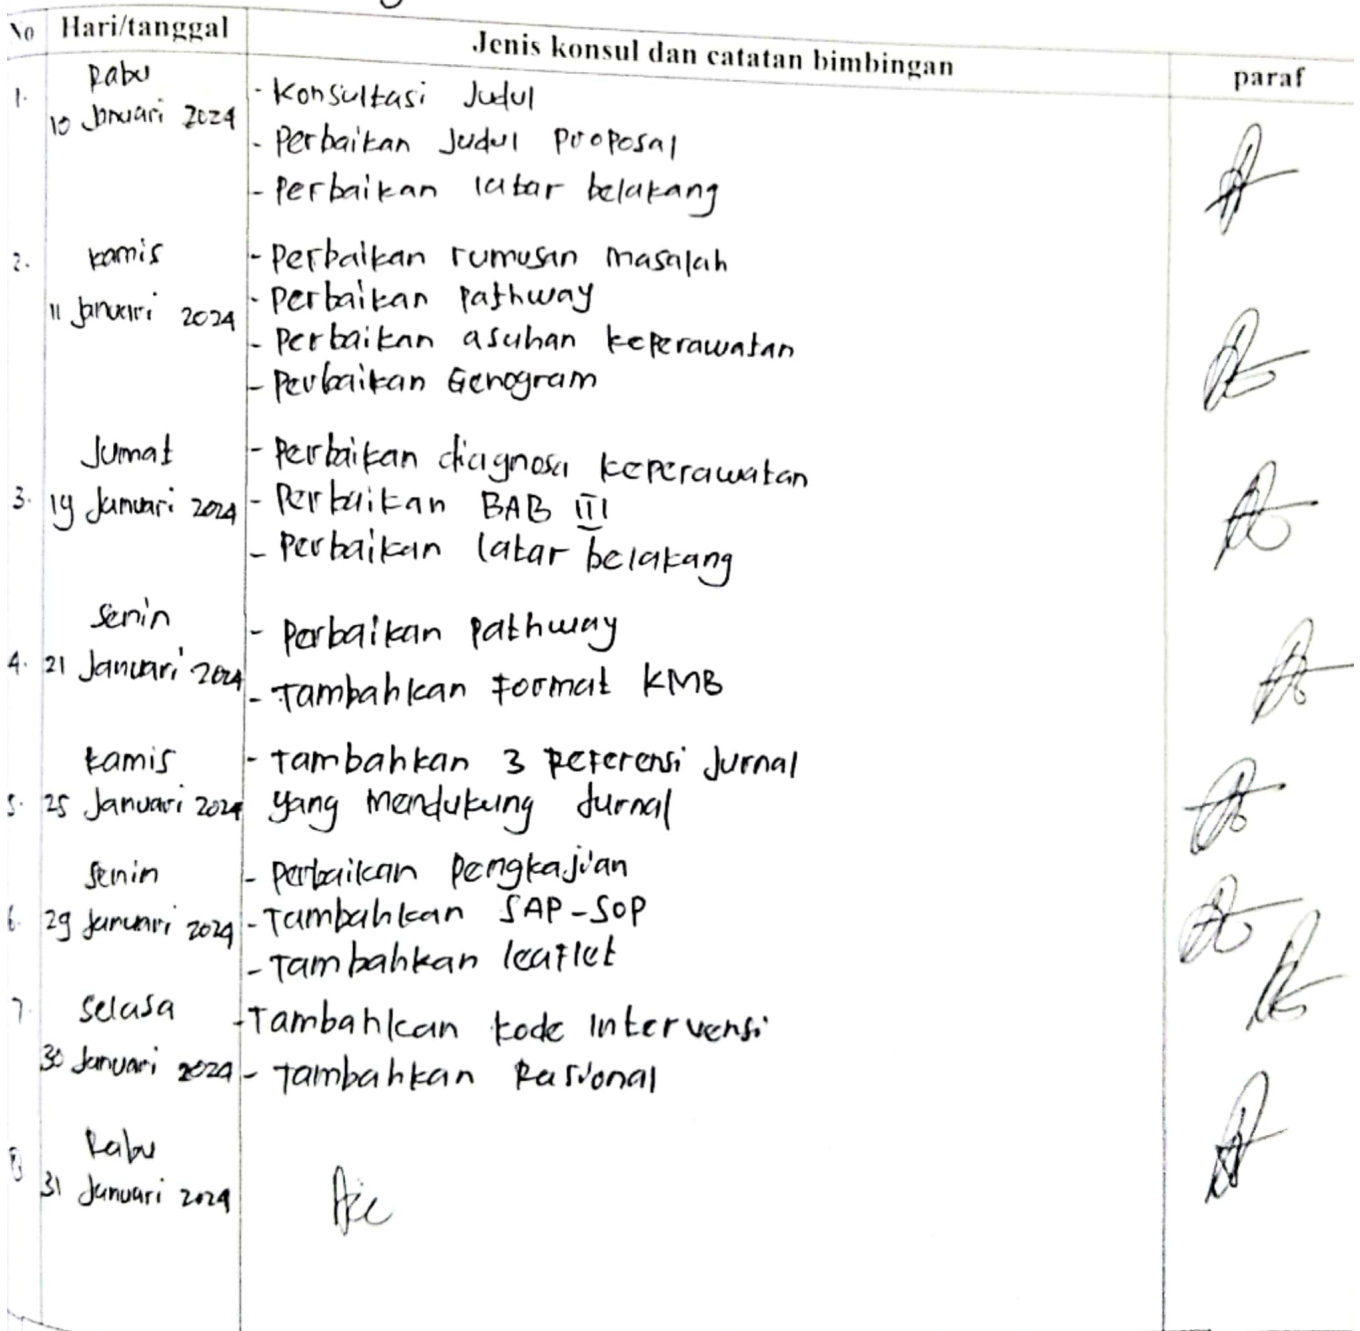 No Hari/tanggal Jenis konsul dan catatan bimbingan paraf
1. Rabu
10 Januari 2024
- Konsultasi Judul
- Perbaikan Judul Proposal
- Perbaikan latar belakang
2. Kamis
11 Januari 2024
- Perbaikan rumusan masalah
- Perbaikan pathway
- Perbaikan asuhan keperawatan
- Perbaikan Genogram
3. Jumat
19 Januari 2024
- Perbaikan diagnosa keperawatan
- Perbaikan BAB III
- Perbaikan latar belakang
4. Senin
21 Januari 2024
- Perbaikan pathway
- Tambahkan Format KMB
5. Kamis
25 Januari 2024
- Tambahkan 3 Referensi Jurnal
yang mendukung Jurnal
6. Senin
29 Januari 2024
- Perbaikan Pengkajian
- Tambahkan SAP-SOP
- Tambahkan leaflet
7. Selasa
30 Januari 2024
- Tambahkan kode Intervensi
- Tambahkan Rasional
8 Rabu
31 Januari 2024
Acc